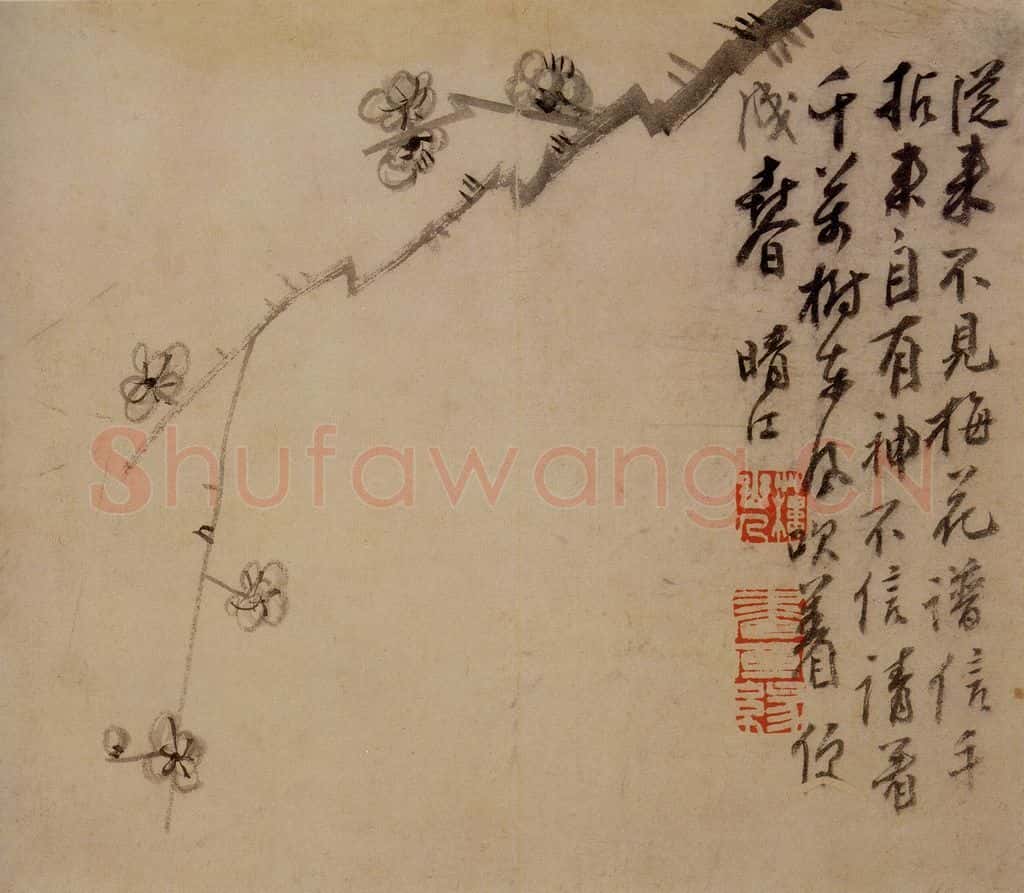 從来不見梅花譜信手
拈来自有神不信請看
千萬樹東風吹着便
成春 晴江
Shufawang.CN